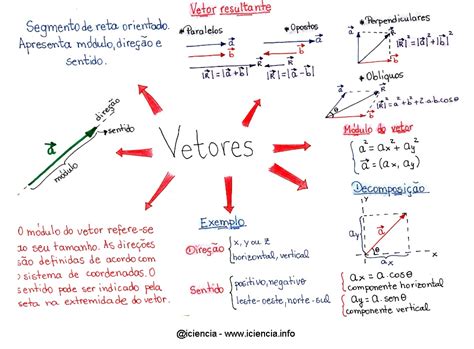 Segmento de reta orientado.
Apresenta módulo, direção e
sentido.
Vetor resultante
*Paralelos
*Opostos
a
b
R
a
b
R
|R| = |a+b|
|R| = |a-b|
*Perpendiculares
a
b
R
|R|² = |a|² + |b|²
*Oblíquos
a
b
R
θ
|R|² = a² + b² + 2ab cosθ
a
direção
sentido
módulo
Vetores
Módulo do vetor
a² = ax² + ay²
a = (ax, ay)
Decomposição
y
ay
a
θ
ax
x
ax = a.cosθ
componente horizontal
ay = a.senθ
componente vertical
O módulo do vetor refere-se
ao seu tamanho. As direções
são definidas de acordo com
o sistema de coordenadas. O
sentido pode ser indicado pela
seta na extremidade do vetor.
Exemplo
Direção
x, y ou z
horizontal, vertical
Sentido
positivo, negativo
leste-oeste, norte-sul
@iciencia - www.iciencia.info